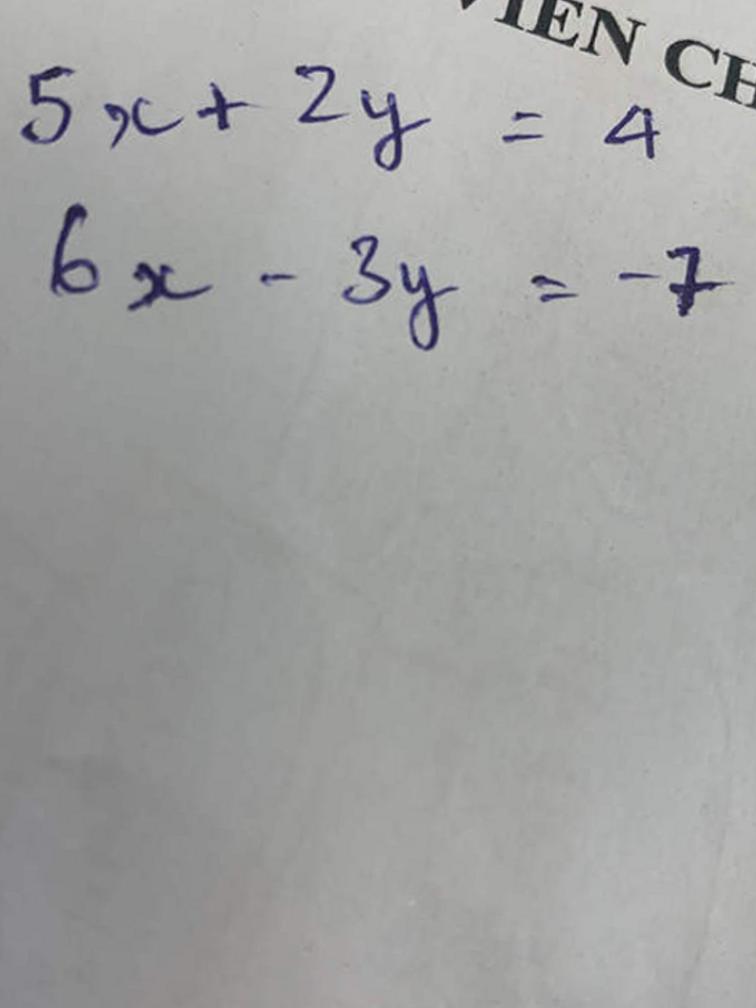 VIEN CH
5x + 2y = 4
6x - 3y = -7